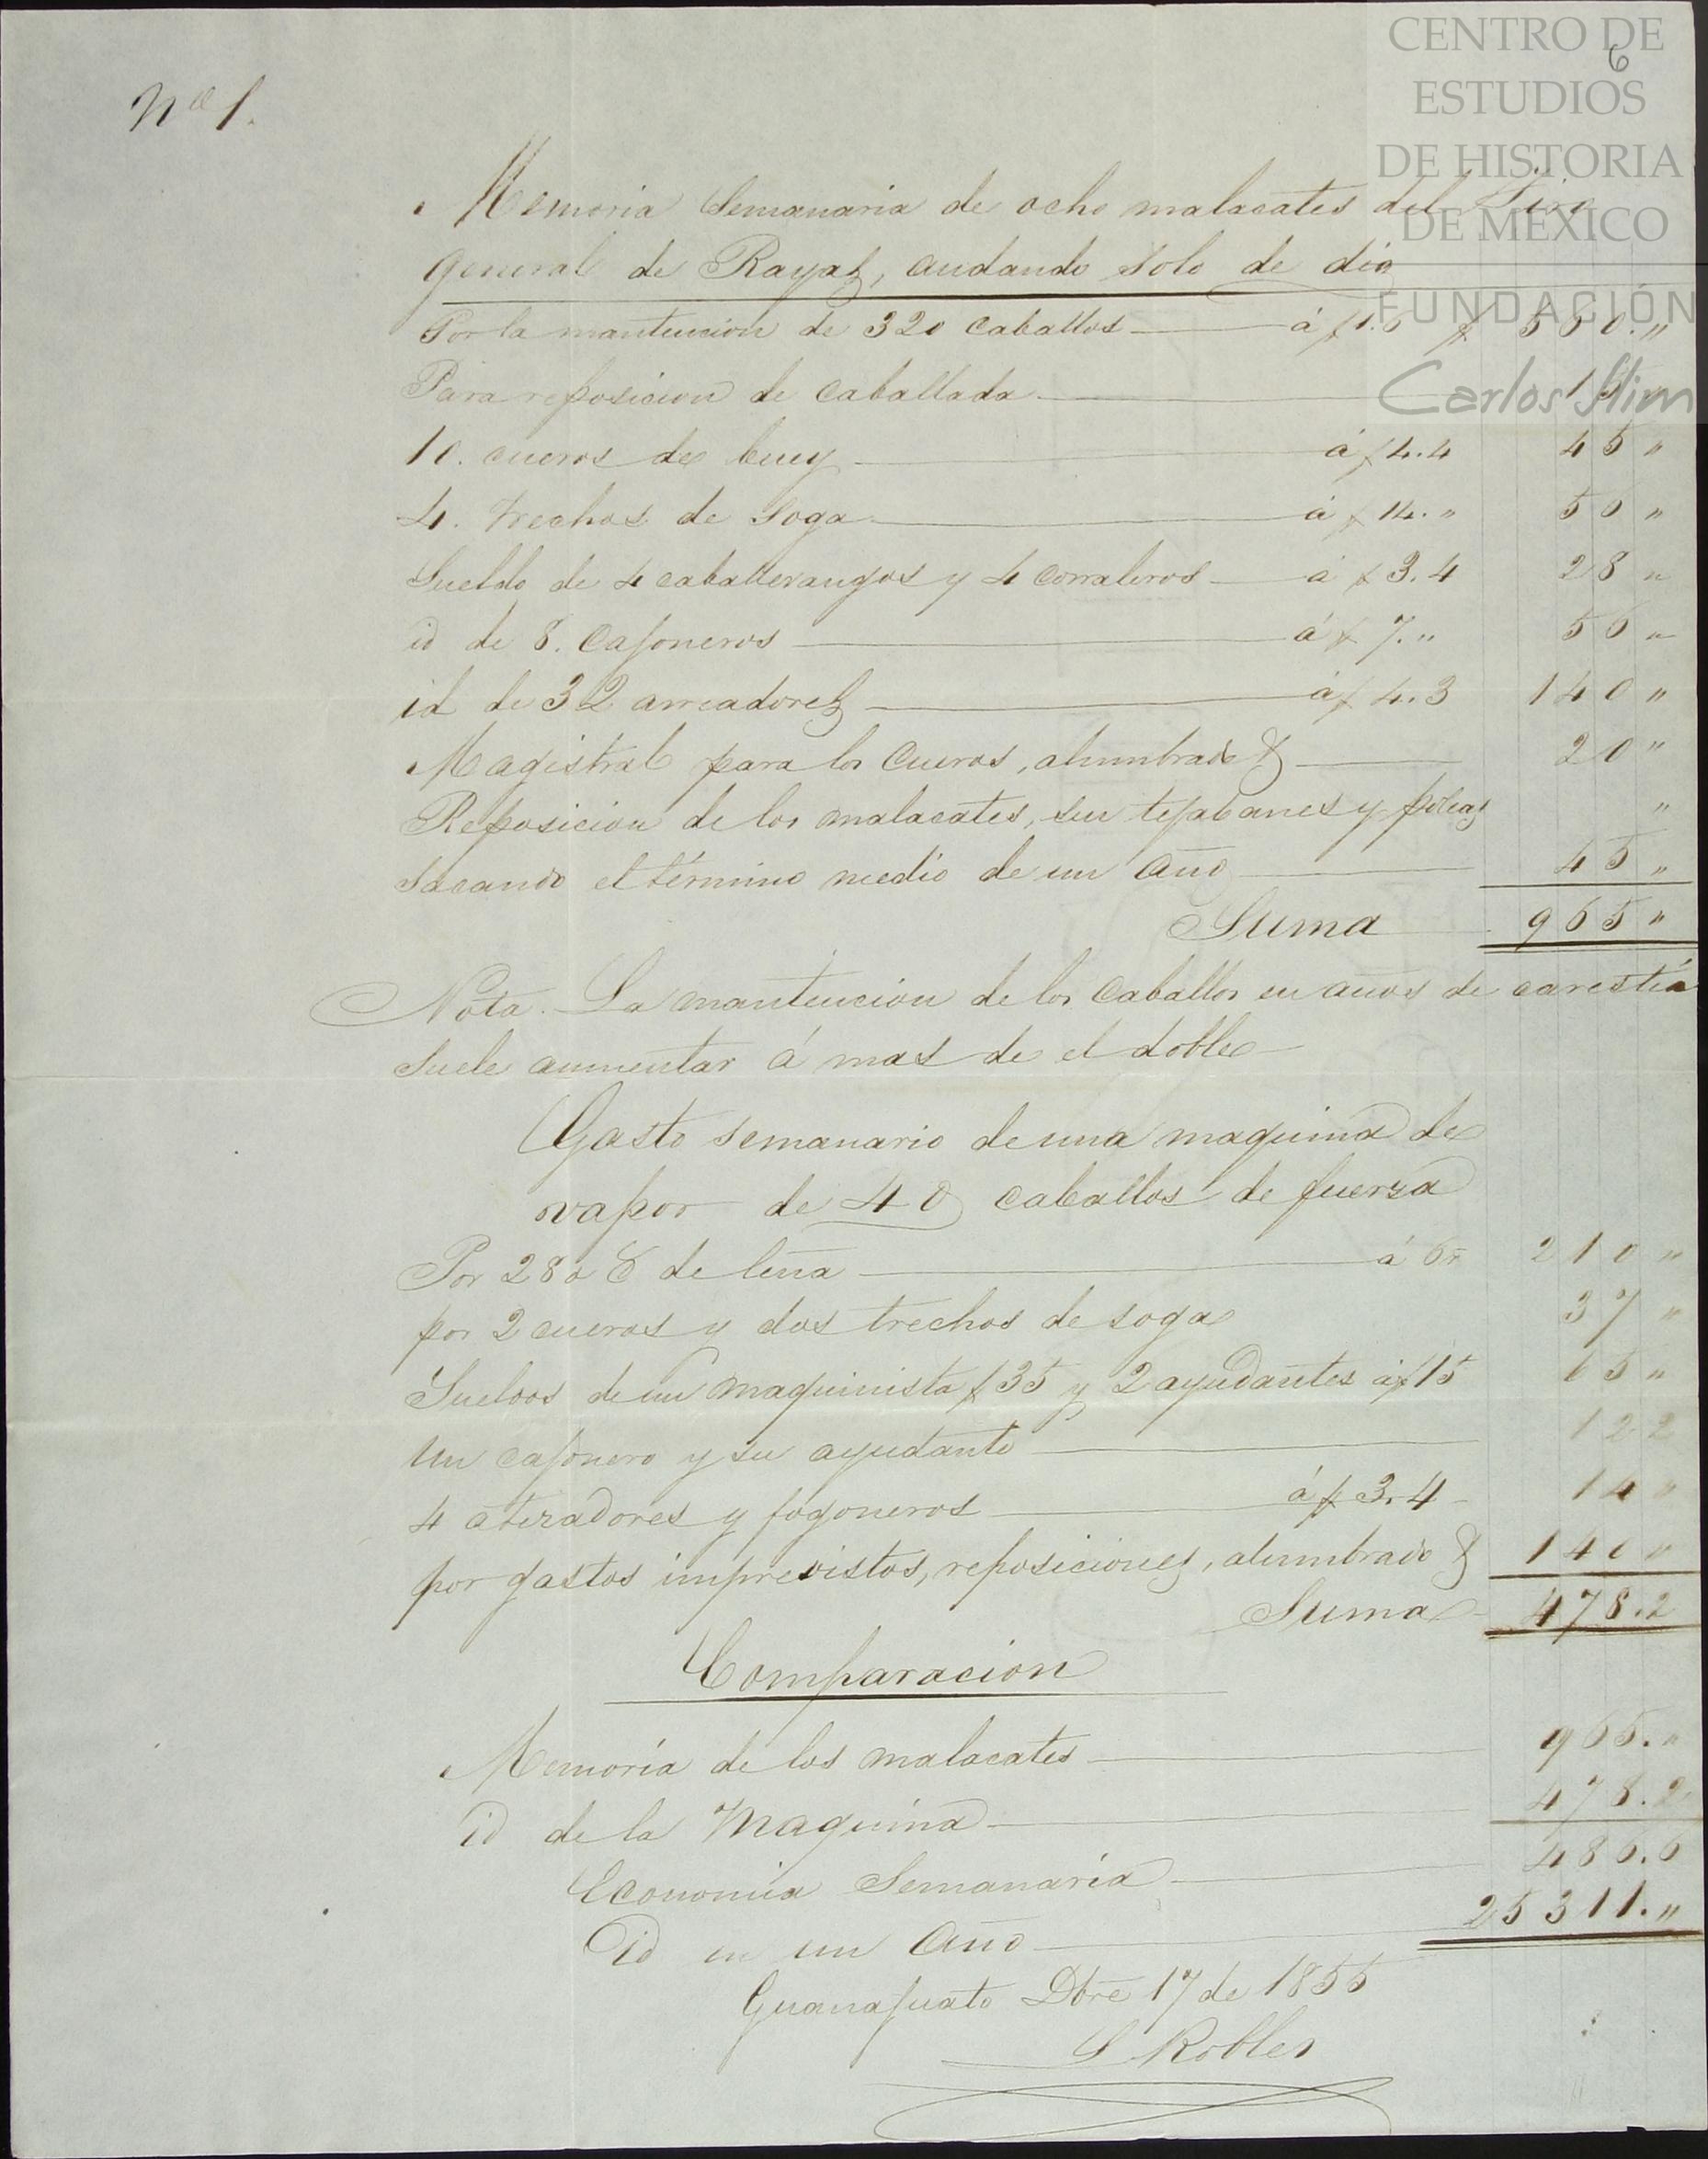 CENTRO DE
ESTUDIOS
DE HISTORIA
DE MEXICO
FUNDACIÓN
Carlos Slim
6
Nº 1.
Memoria Semanaria de ocho malacates del Tiro
general de Rayas, andando solo de dia
Por la mantencion de 320 caballos á $ 1.6 $ 560. "
Para reposicion de caballada 15 "
10. cueros de buey á $ 4.4 45 "
4. trechos de soga á $ 14. " 56 "
Sueldo de 4 caballerangos y 4 corraleros á $ 3.4 28 "
id de 8. Cajoneros á $ 7. " 56 "
id de 32 arreadores á $ 4.3 140 "
Magistral para los Cueros, alumbrado & 20 "
Reposicion de los malacates, sus tejabanes y poleas "
sacando el término medio de un año 45 "
Suma 965 "
Nota. La mantencion de los caballos en años de carestía
suele aumentar á mas de el doble
Gasto semanario de una maquina de
vapor de 40 caballos de fuerza
Por 280 C de leña á 6 r 210 "
por 2 cueros y dos trechos de soga 37 "
Sueldos de un maquinista $ 35 y 2 ayudantes á $ 15 65 "
Un cajonero y su ayudante 12 2
4 atizadores y fogoneros á $ 3.4 14 "
por gastos imprevistos, reposiciones, alumbrado & 140 "
Suma 478.2
Comparacion
Memoria de los malacates 965. "
id de la Maquina 478.2
Economia Semanaria 486.6
id en un Año 25311. "
Guanajuato Dbre 17 de 1855
S Robles